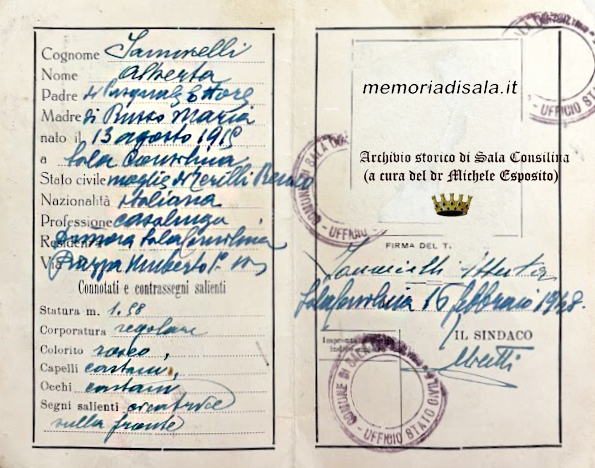 Cognome Iannielli
Nome Alberta
Padre di Pasquale Ettore
Madre di Russo Maria
nato il 13 agosto 1915
a Sala Consilina
Stato civile moglie di Merilli
Nazionalità italiana
Professione casalinga
Residenza Dimora Sala Consilina
Via Piazza Umberto I°
Connotati e contrassegni salienti
Statura m. 1.58
Corporatura regolare
Colorito roseo,
Capelli castani,
Occhi castani
Segni salienti cicatrice
sulla fronte
UFFICIO STATO
memoriadisala.it
COMUNE DI SALA
UFFICIO
Archivio storico di Sala Consilina
(a cura del dr Michele Esposito)
FIRMA DEL T.
Sala Consilina 16 febbraio 1948.
IL SINDACO
COMUNE DI SALA
UFFICIO STATO